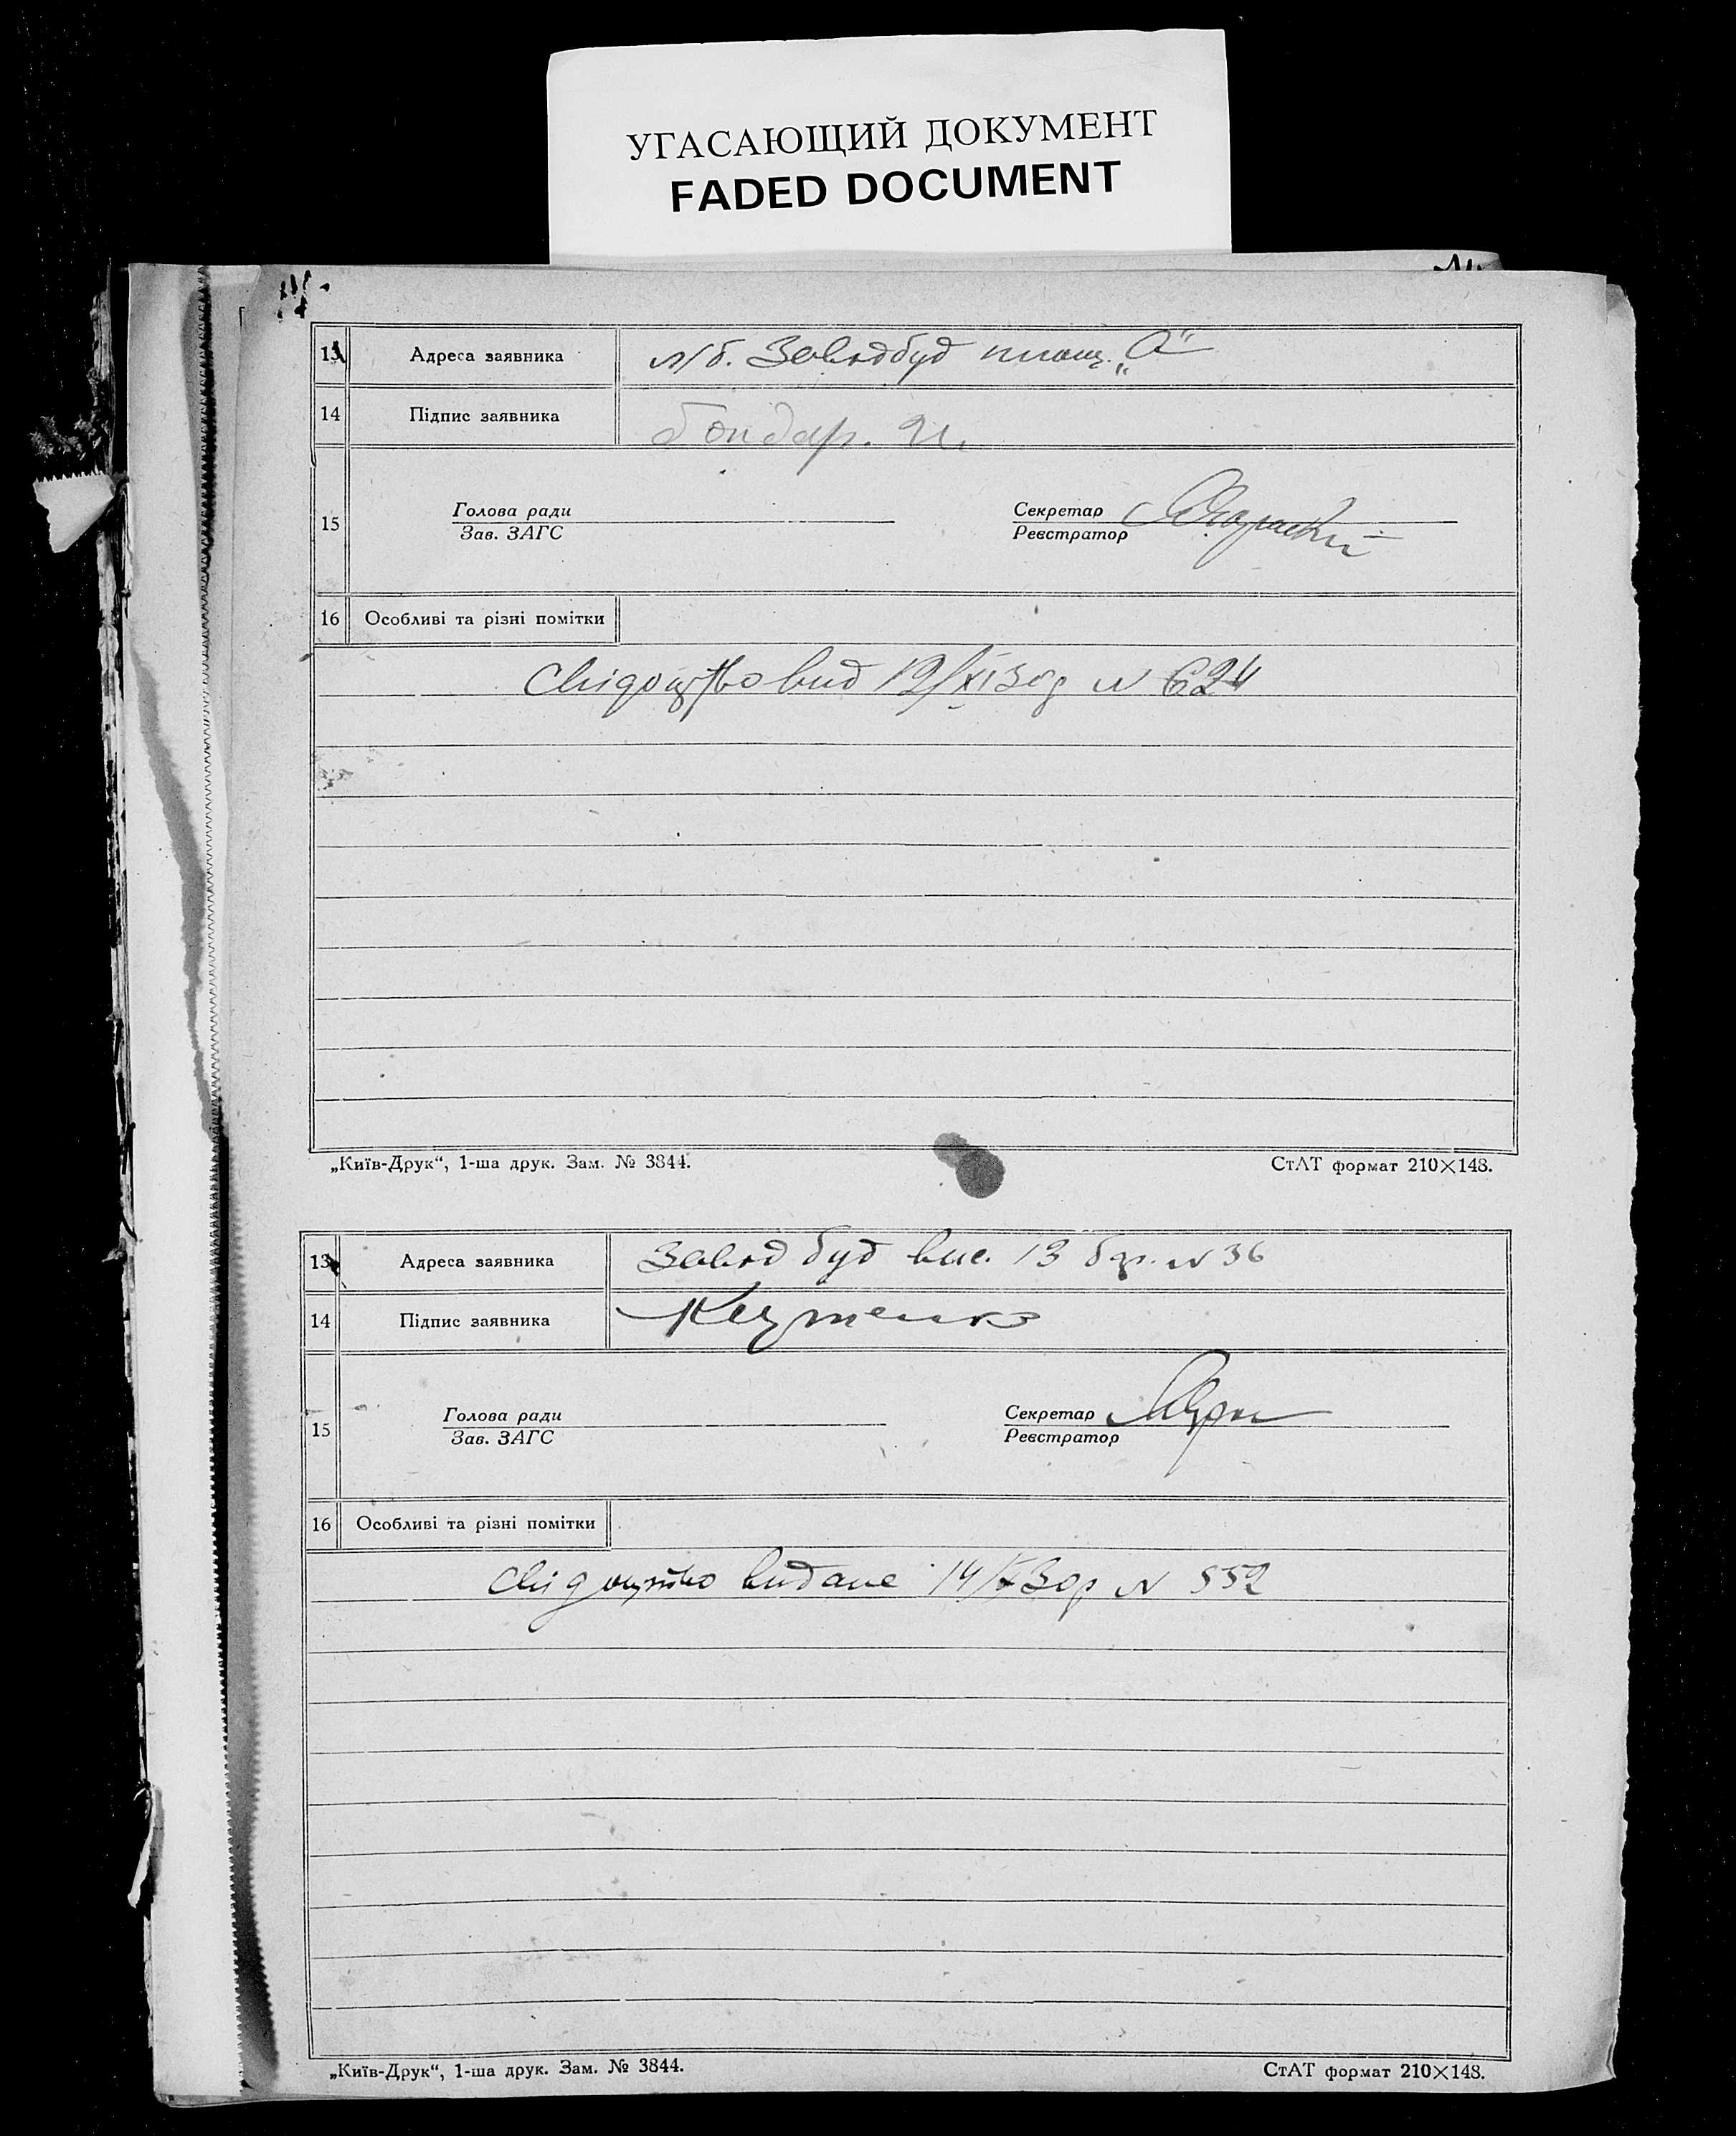 УГАСАЮЩИЙ ДОКУМЕНТ
FADED DOCUMENT
13 Адреса заявника л/б. Заводбуд площ. „А“
14 Підпис заявника Бондар. И.
15 Голова ради Секретар
Зав. ЗАГС Реєстратор
16 Особливі та різні помітки
Свідоцтво вид 19/XI 30р N 624
„Київ-Друк“, 1-ша друк. Зам. № 3844. СтАТ формат 210×148.
13 Адреса заявника Заводбуд вис. 13 бар. N 36
14 Підпис заявника
15 Голова ради Секретар
Зав. ЗАГС Реєстратор
16 Особливі та різні помітки
Свідоцтво видане 14/X 30р N 552
„Київ-Друк“, 1-ша друк. Зам. № 3844. СтАТ формат 210×148.